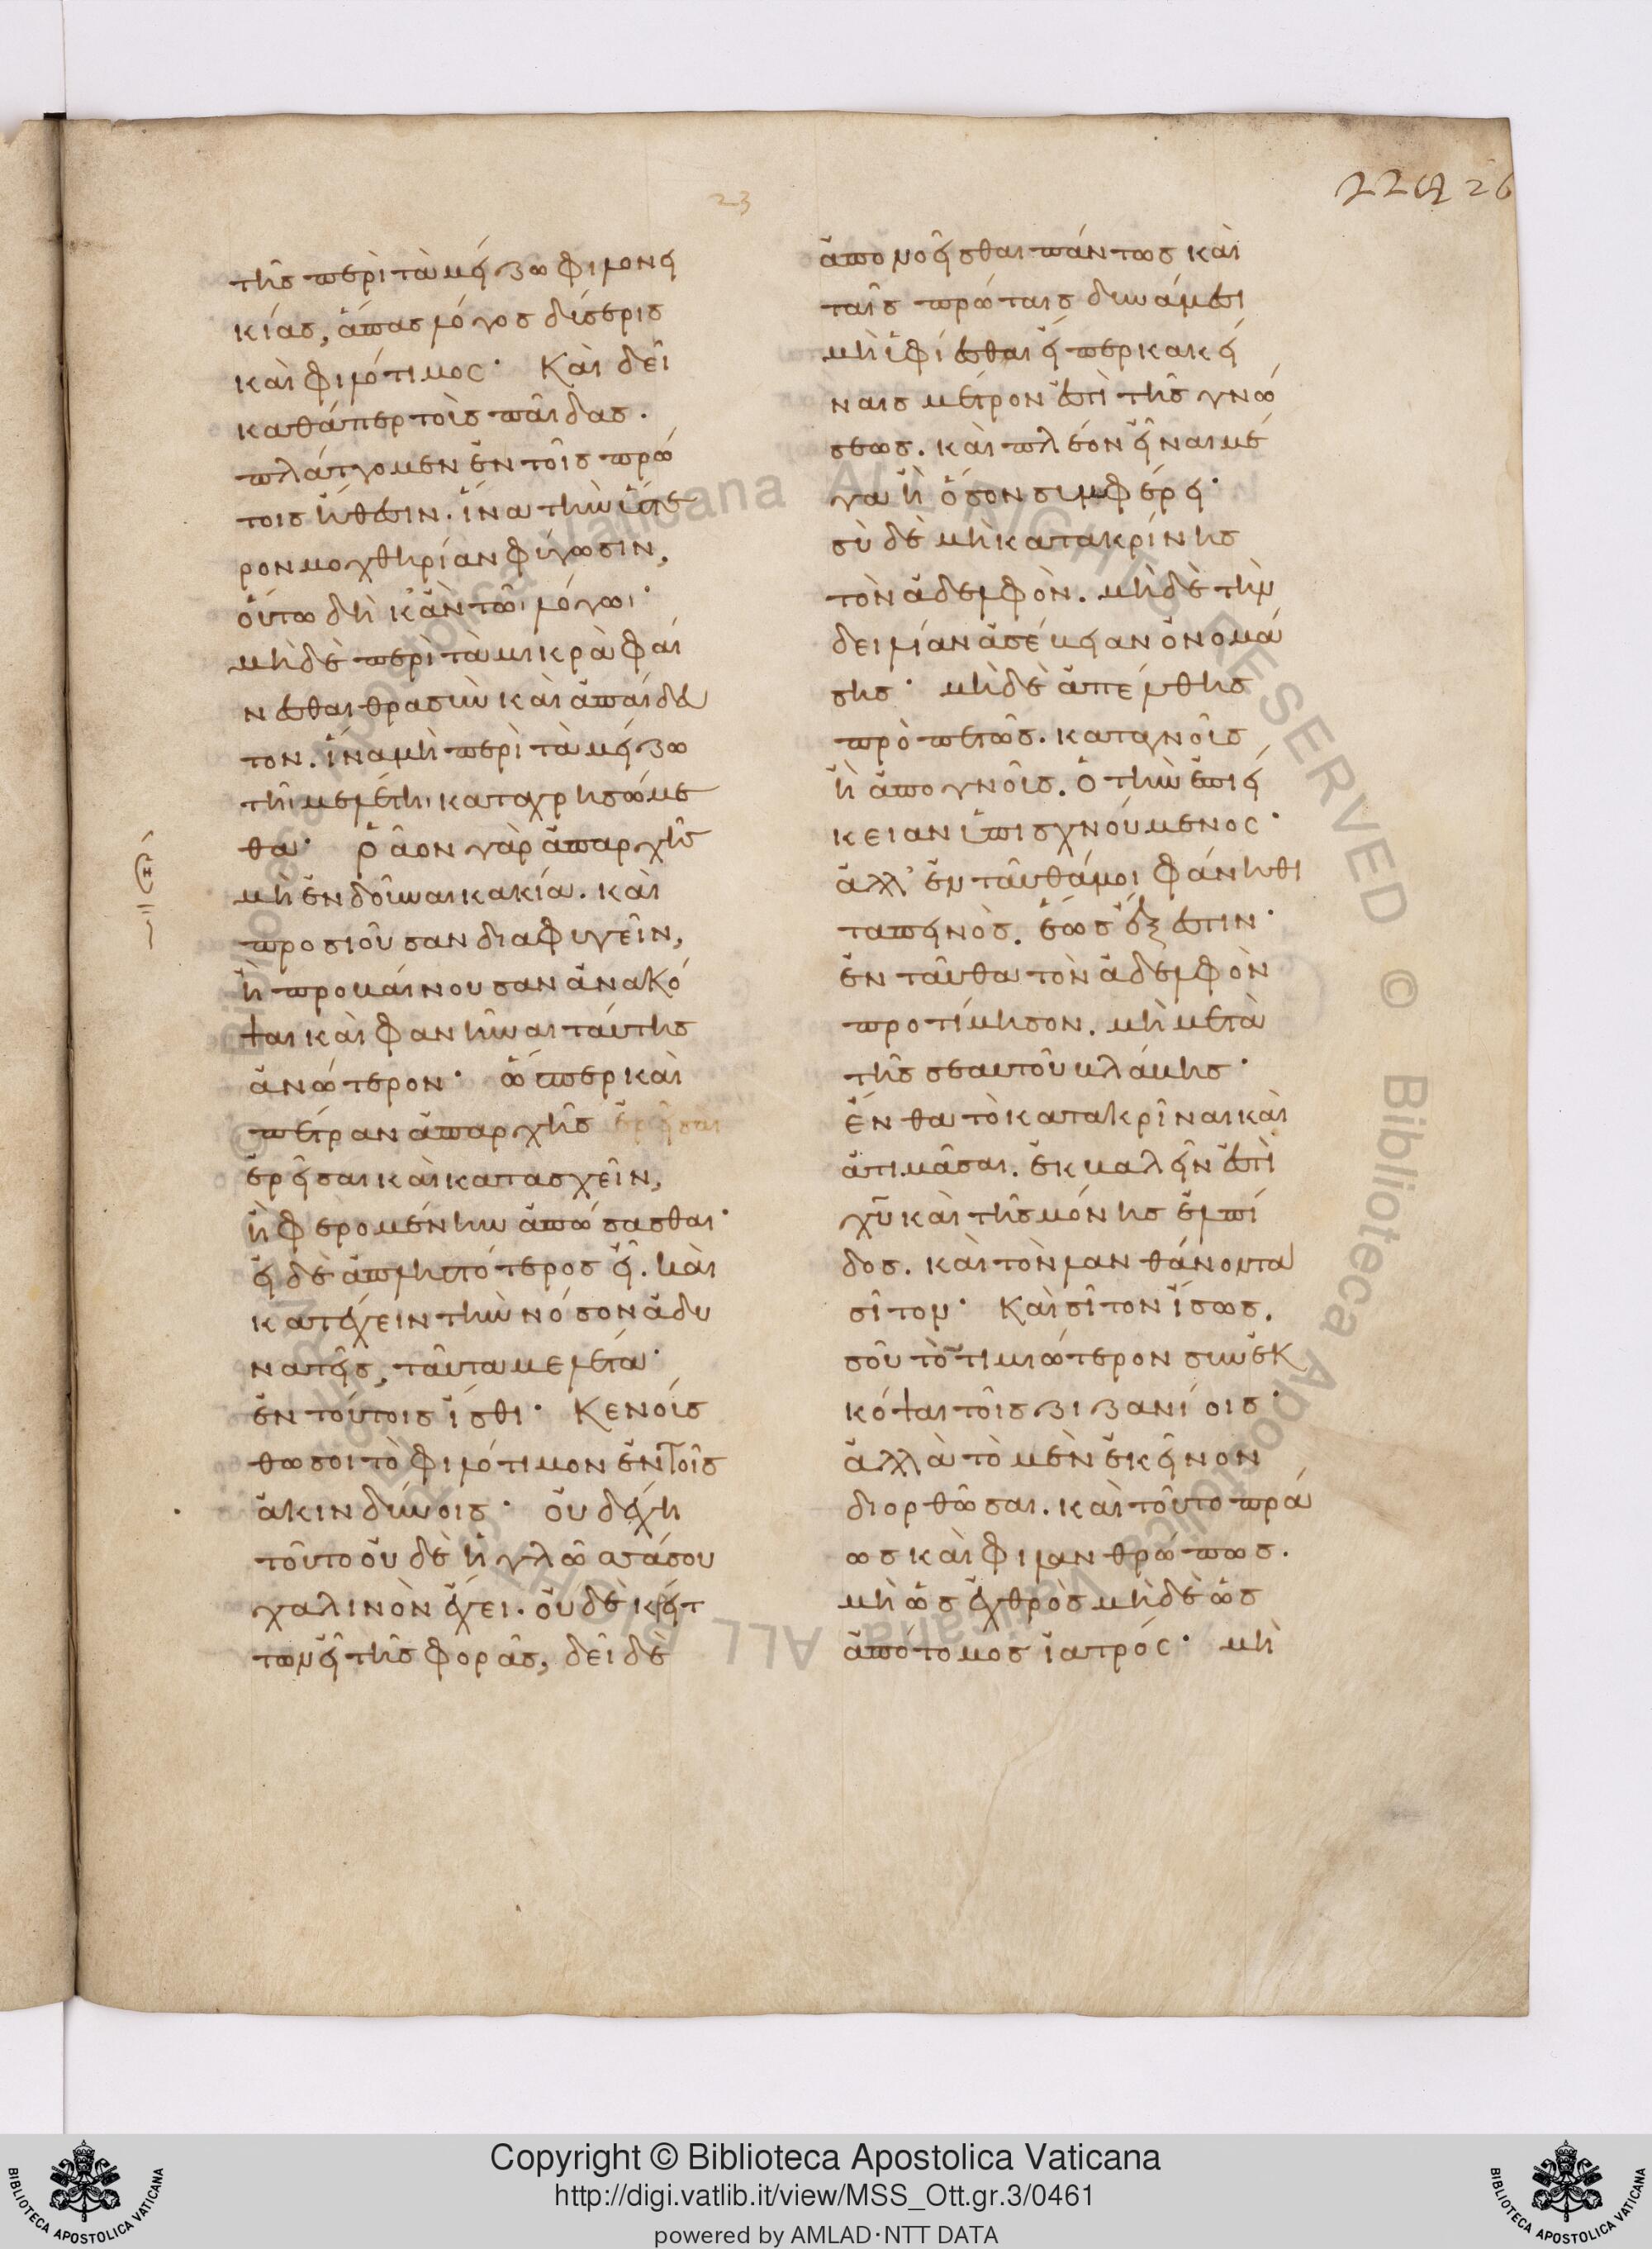 23
226 26
τῆς περὶ τὰ μείζω φιλονει
κίας, ἅπας λόγος δύσερις
καὶ φιλότιμος· Καὶ δεῖ
καθάπερ τοὺς παῖδας.
πλάττομεν ἐν τοῖς πρώ
τοις ἤθεσιν. ἵνα τὴν ὕστε
ρον μοχθηρίαν φύγωσιν,
οὕτω δὴ κἀν τῶι λόγωι·
μὴ δὲ περὶ τὰ μικρὰ φαί
νεσθαι θρασὺν καὶ ἀπαίδευ
τον. ἵνα μὴ περὶ τὰ μείζω
τῆι μελέτηι καταχρησώμε
θα· ῥᾶον γὰρ ἀπαρχῆς
μὴ ἐνδοῦναι κακία. καὶ
προσιοῦσαν διαφυγεῖν,
ἢ προβαίνουσαν ἀνακό
ψαι καὶ φανῆναι ταύτης
ἀνώτερον· ὥσπερ καὶ
πέτραν ἀπαρχῆς ἐρεῖσαι
ἐρεῖσαι καὶ κατασχεῖν,
ἢ φερομένην ἀπώσασθαι·
εἰ δὲ ἀπληστότερος εἶ. καὶ
κατέχειν τὴν νόσον ἀδυ
νατεῖς, ταῦτα μελέτα·
ἐν τούτοις ἴσθι· Κενούσ
θω σοι τὸ φιλότιμον ἐν τοῖς
ἀκινδύνοις· οὐ δέχη
τοῦτο οὐδὲ ἡ γλῶσσά σου
χαλινὸν ἔχει. οὐδὲ κρείτ
των εἶ τῆς φορᾶς, δεῖ δὲ
ἀπονοεῖσθαι πάντως καὶ
ταῖς πρώταις δυνάμεσι
μὴ ὑφίεσθαι εἴπερ κἀκεί
ναις μέτρον ἐστὶ τῆς γνώ
σεως. καὶ πλέον εἶναι μέ
γα ἢ ὅσον συμφέρει·
σὺ δὲ μὴ κατακρίνης
τὸν ἀδελφὸν. μὴ δὲ τὴν
δειλίαν ἀσέβειαν ὀνομά
σης· μὴ δὲ ἀπέλθης
προπετῶς. καταγνοὺς
ἢ ἀπογνοὺς. ὁ τὴν ἐπιεί
κειαν ὑπισχνούμενος·
ἀλλ' ἐνταῦθά μοι φάνηθι
ταπεινὸς. ἕως ἔξεστιν·
ἐνταῦθα τὸν ἀδελφὸν
προτίμησον. μὴ μετὰ
τῆς σεαυτοῦ βλάβης·
ἔνθα τὸ κατακρῖναι καὶ
ἀτιμᾶσαι. ἐκβαλεῖν ἐστὶ
χῦ καὶ τῆς μόνης ἐλπί
δος. καὶ τὸν λανθάνοντα
σῖτον· Καὶ σῖτον ἴσως.
σοῦ τὸ τιμιώτερον συνεκ
κόψαι τοῖς ζιζανίοις·
ἀλλὰ τὸ μὲν ἐκεῖνον
διορθῶσαι. καὶ τοῦτο πρά
ως καὶ φιλανθρώπως.
μὴ ὡς ἐχθρὸς μὴ δὲ ὡς
ἀπότομος ἰατρός· μὴ
Copyright © Biblioteca Apostolica Vaticana
http://digi.vatlib.it/view/MSS_Ott.gr.3/0461
powered by AMLAD·NTT DATA
BIBLIOTECA APOSTOLICA VATICANA
BIBLIOTECA APOSTOLICA VATICANA